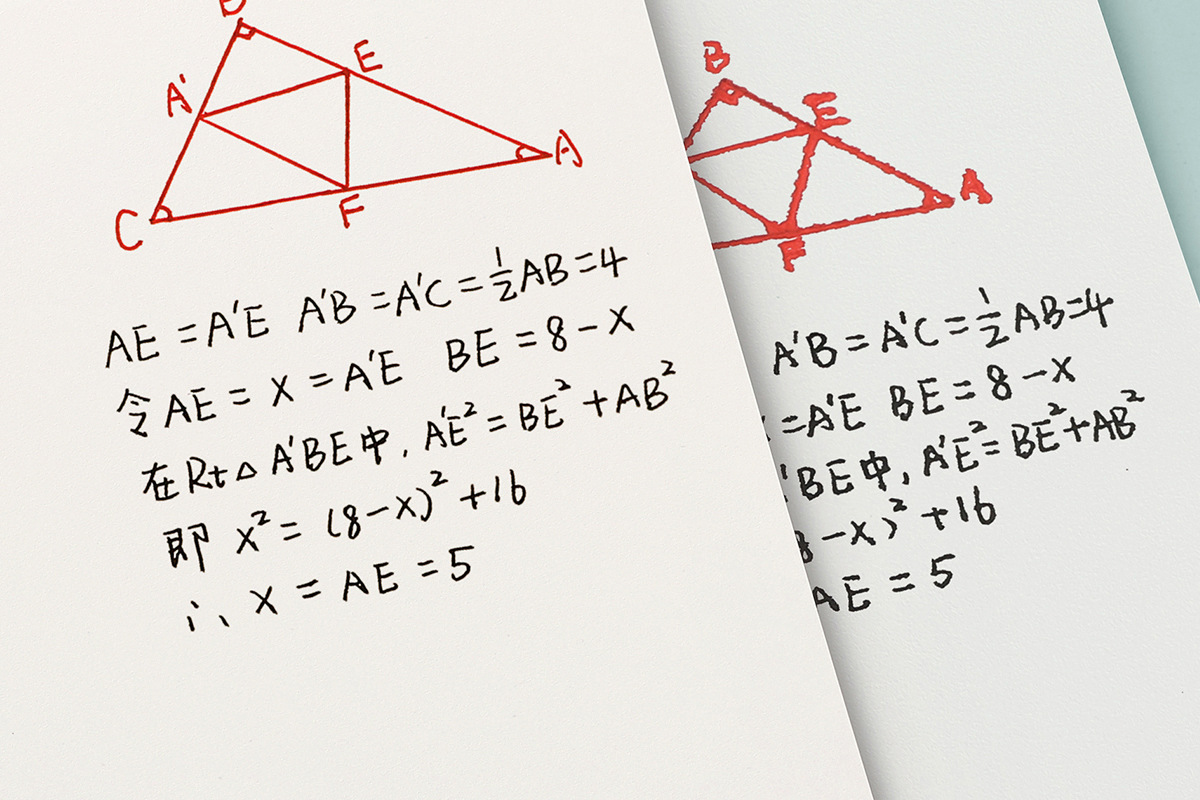 B
E
A'
A
C
F
AE = A'E A'B = A'C = 1/2 AB = 4
令 AE = X = A'E BE = 8 - X
在 Rt△ A'BE 中, A'E² = BE² + AB²
即 X² = (8-X)² + 16
∴ X = AE = 5
B
E
A
F
A'B = A'C = 1/2 AB = 4
= A'E BE = 8 - X
'BE 中, A'E² = BE² + AB²
8 - X)² + 16
AE = 5